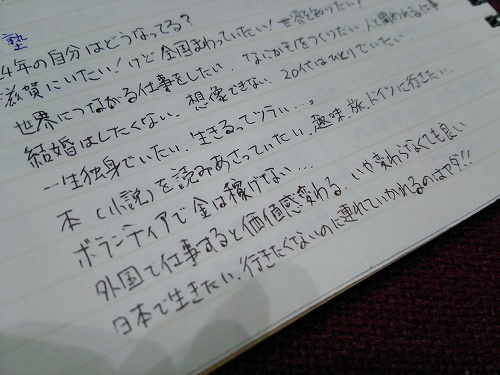 塾
4年の自分はどうなってる?
滋賀にいたい!けど全国まわっていたい!世界を知りたい!
世界につながる仕事をしたい。なにかものをつくりたい。人と関われる仕事
結婚はしたくない。想像できない。20代はひとりでいたい。
一生独身でいたい。生きるってツラい...。
本(小説)を読みあさっていたい。趣味、旅、ドイツに行きたい。
ボランティアで金は稼げない...
外国で仕事すると価値感変わる。いや変わらなくても良い
日本で生きたい。行きたくないのに連れていかれるのはヤダ!!